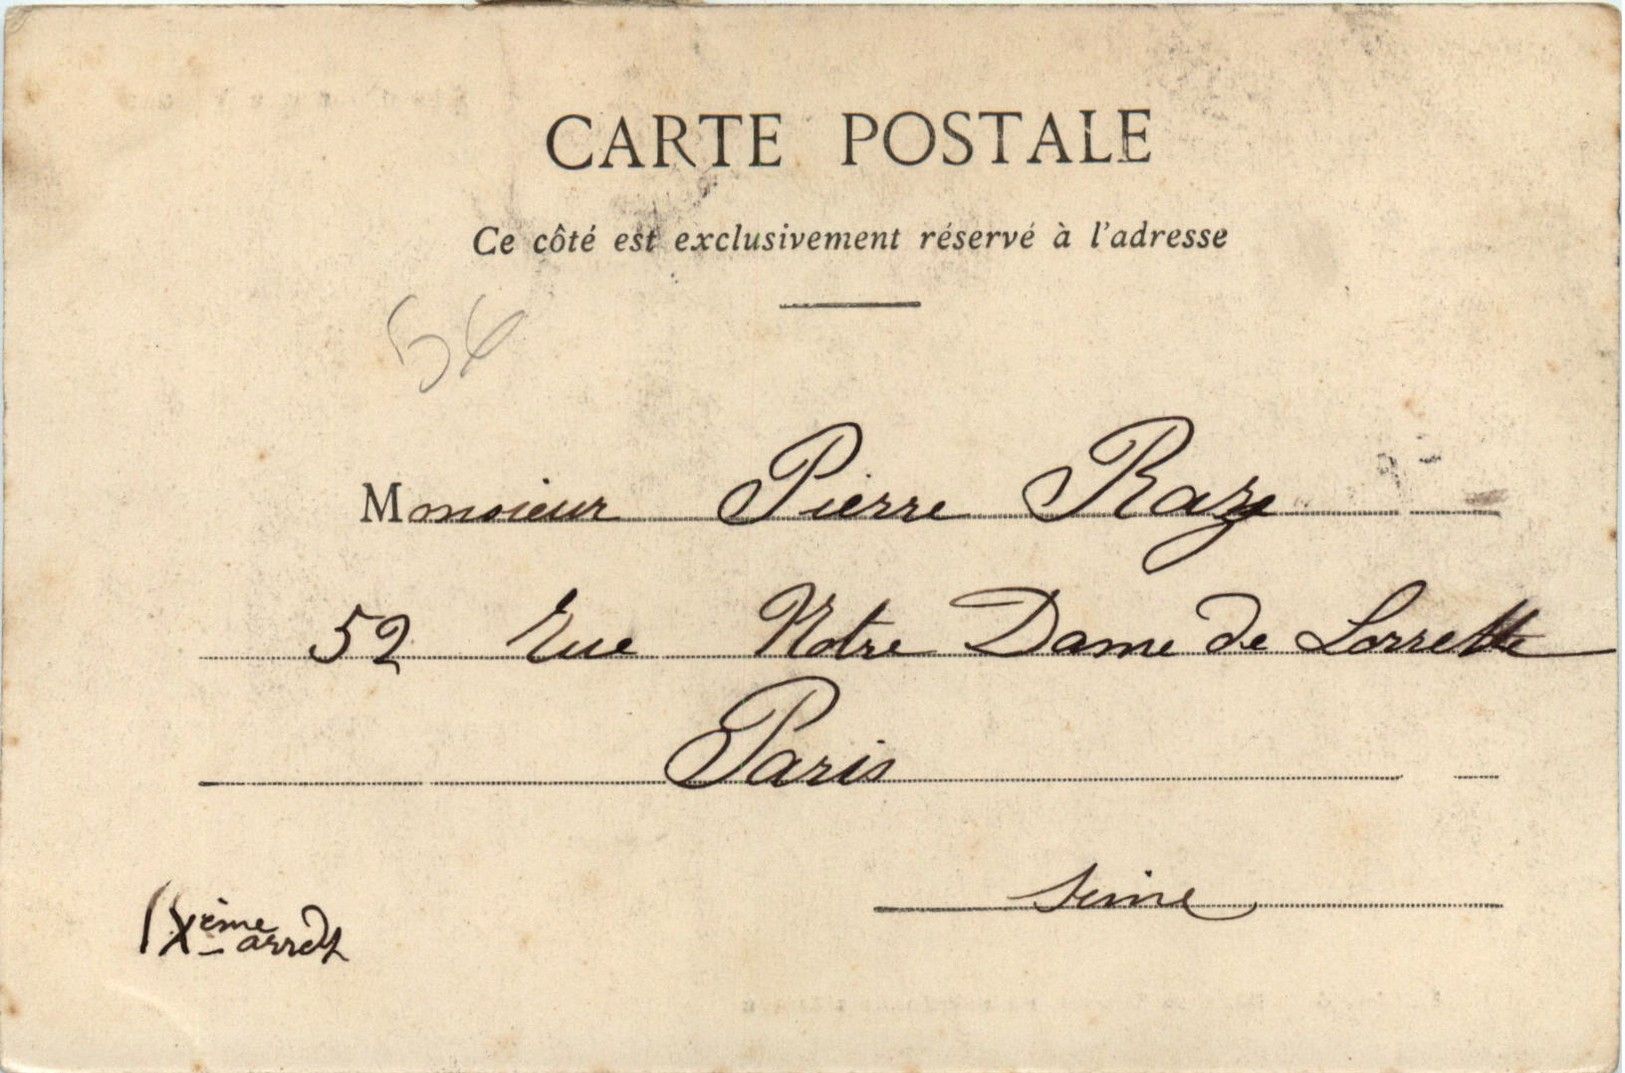 CARTE POSTALE
Ce côté est exclusivement réservé à l'adresse
56
Monsieur Pierre Raze
52 Rue Notre Dame de Lorrette
Paris
Seine
IXème arrdt